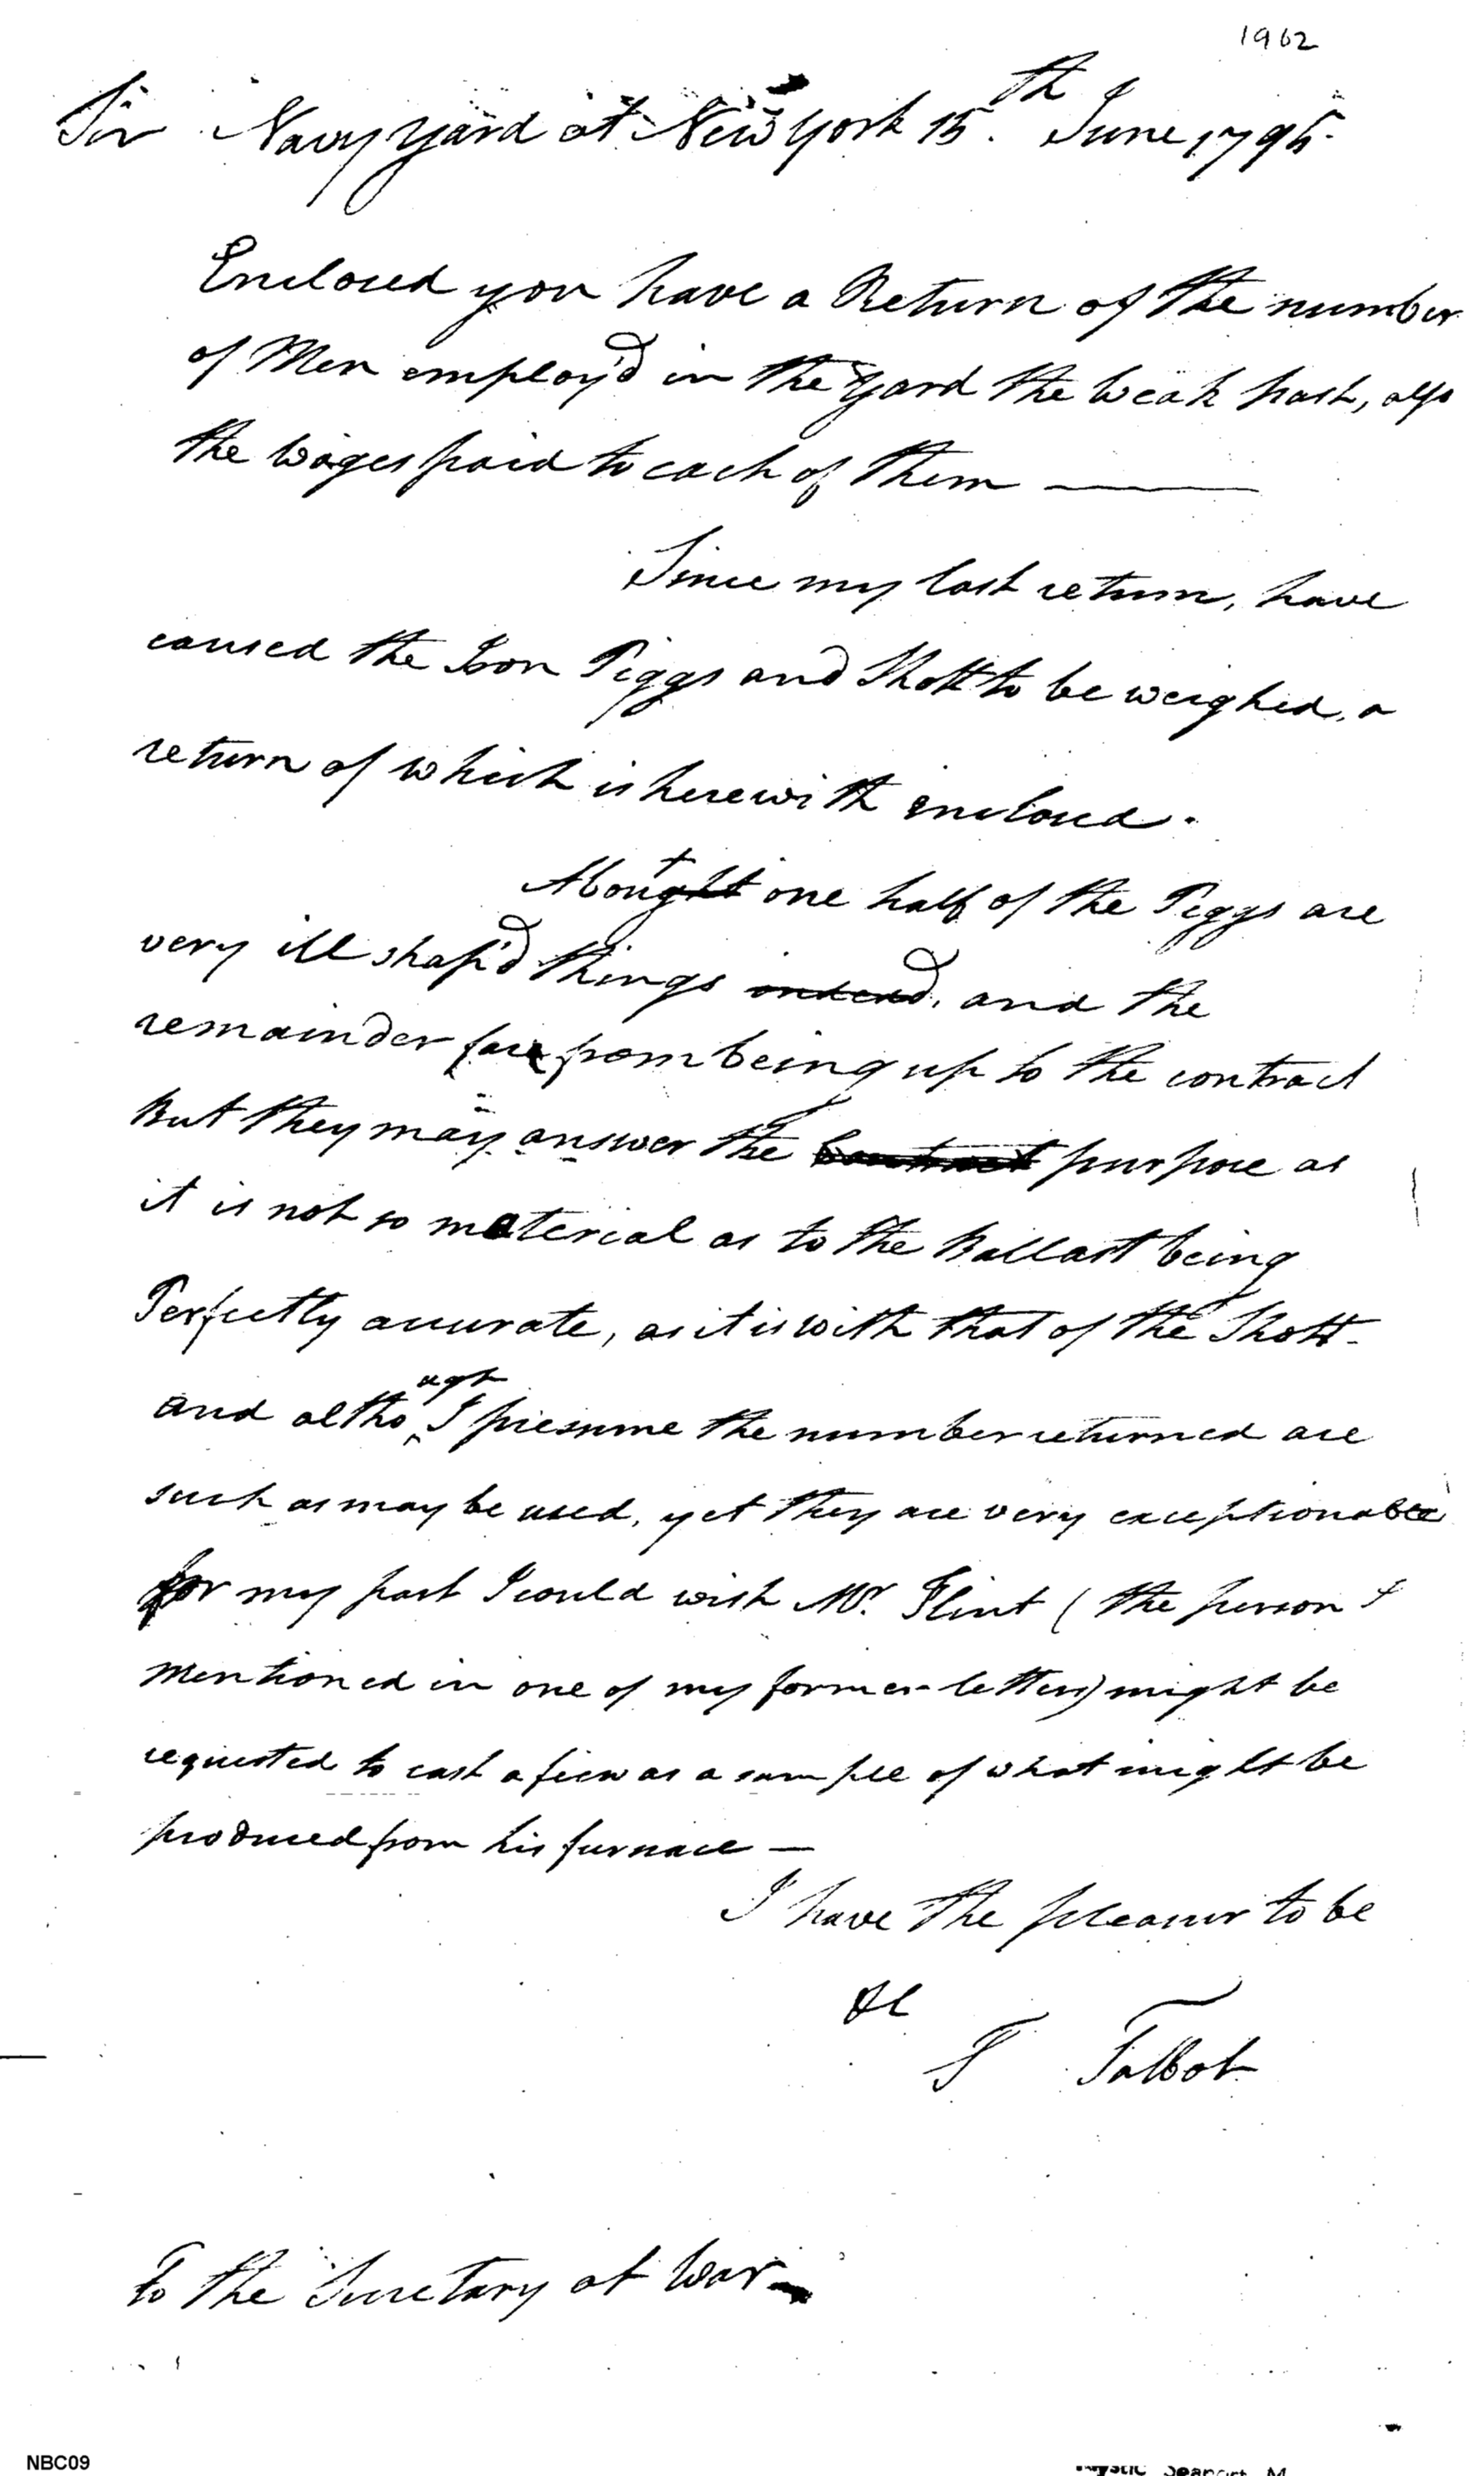 1962
Sir Navy Yard at New York 15th. June 1795.
Enclosed you have a Return of the number
of Men employ'd in the Yard the Weak past, also
the Wages paid to each of them ———
Since my last return, have
caused the Iron Piggs and Shott to be weighed, a
return of which is herewith enclosed.
About one half of the Piggs are
very ill shap'd things indeed, and the
remainder far from being up to the contract
But they may answer the Contract purpose as
it is not so material as to the Ballast being
Perfectly accurate, as it is with that of the Shott-
and although I presume the number returned are
such as may be used, yet they are very exceptionable
for my part I could wish Mr. Flint ( the person I
Mentioned in one of my former letters) might be
requested to cast a few as a sample of what might be
produced from his furnace —
I have the pleasur to be
&c
S Talbot
To the Secretary at War
NBC09
Mystic Seaport M